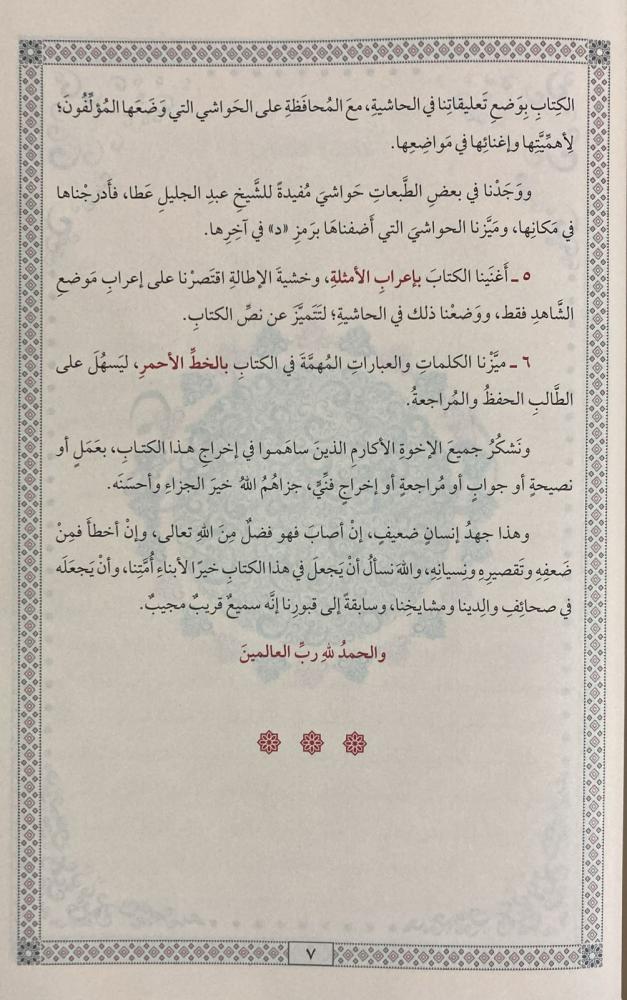 الكِتابِ بِوَضعِ تَعليقاتِنا في الحاشيةِ، معَ المُحافَظةِ على الحَواشي التي وَضَعَها المُؤلِّفُونَ؛
لِأهمِّيَّتِها وإغنائِها في مَواضِعِها.
ووَجَدْنا في بعضِ الطَّبعاتِ حَواشيَ مُفيدةً للشَّيخِ عبدِ الجليلِ عَطا، فأَدرجْناها
في مَكانِها، ومَيَّزنا الحواشيَ التي أَضفناهَا برَمزِ «د» في آخِرِها.
٥ ـ أَغنَينا الكتابَ بإعرابِ الأمثلةِ، وخشيةَ الإطالةِ اقتَصرْنا على إعرابِ مَوضعِ
الشَّاهدِ فقط، ووَضعْنا ذلك في الحاشيةِ؛ لتَتَميَّزَ عن نصِّ الكتابِ.
٦ ـ ميَّزْنا الكلماتِ والعباراتِ المُهمَّةَ في الكتابِ بالخطِّ الأحمرِ، ليَسهُلَ على
الطَّالبِ الحفظُ والمُراجعةُ.
ونَشكُرُ جميعَ الإخوةِ الأكارمِ الذينَ ساهَموا في إخراجِ هذا الكتابِ، بعَمَلٍ أو
نصيحةٍ أو جوابٍ أو مُراجعةٍ أو إخراجٍ فنِّيٍّ، جزاهُمُ اللهُ خيرَ الجزاءِ وأحسَنَه.
وهذا جهدُ إنسانٍ ضعيفٍ، إنْ أصابَ فهو فضلٌ مِنَ اللهِ تعالى، وإنْ أخطأَ فمِنْ
ضَعفِهِ وتَقصيرِهِ ونِسيانِهِ، واللهَ نسألُ أنْ يَجعلَ في هذا الكتابِ خيرًا لأبناءِ أُمَّتِنا، وأنْ يَجعَلَه
في صحائِفِ والِدينا ومشايخِنا، وسابقةً إلى قبورِنا إنَّه سميعٌ قريبٌ مجيبٌ.
والحمدُ للهِ ربِّ العالمينَ
٧